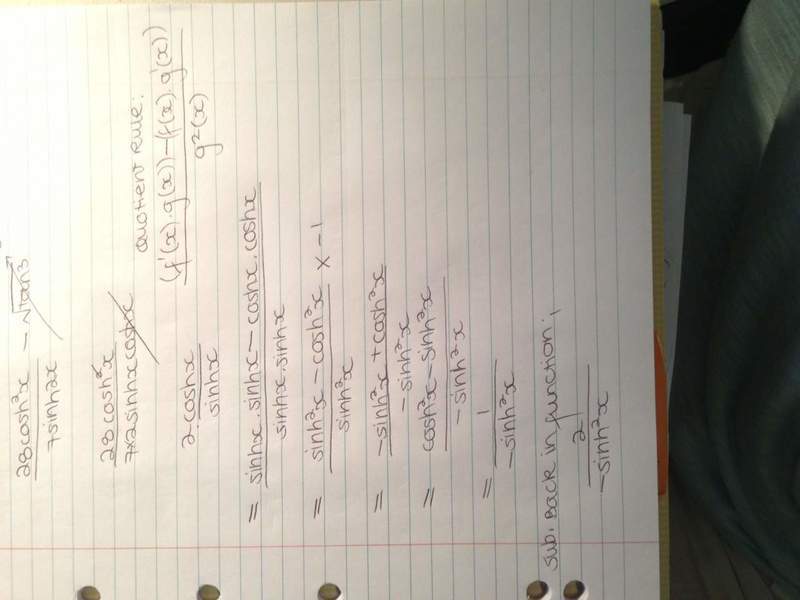 28cosh²x / 7sinh2x − √tan3
28cosh²x / 7×2sinhxcoshx
Quotient rule:
2·coshx / sinhx
(f'(x).g(x))−(f(x).g'(x)) / g²(x)
= sinhx.sinhx − coshx.coshx / sinhx.sinhx
= sinh²x − cosh²x / sinh²x × −1
= −sinh²x + cosh²x / −sinh²x
= cosh²x − sinh²x / −sinh²x
= 1 / −sinh²x
sub. Back in function:,
2 / −sinh²x